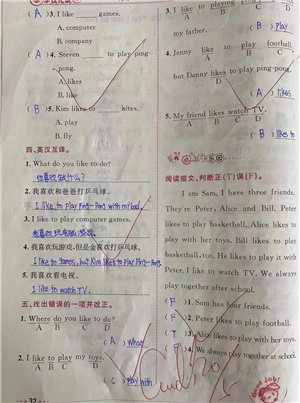 (A) 3. I like ____ games.
A. computer
B. company
(A) 4. Steven ____ to play ping-pong.
A. likes
B. like
(B) 5. Kim likes to ____ kites.
A. play
B. fly
四、英汉互译。
1. What do you like to do?
你喜欢做什么?
2. 我喜欢和爸爸打乒乓球。
I like to play Ping-Pong with my dad.
3. I like to play computer games.
我喜欢玩电脑游戏。
4. 我喜欢玩游戏,但金喜欢打乒乓球。
I like to games, but Kim likes to play Ping-Pong
5. 我喜欢看电视。
I like to watch TV.
五、找出错误的一项并改正。
1. Where do you like to do?
A B C D
(A) What
2. I like to play my toys.
A B C D
(C) play with
32
3. I like to playing ping-
A B
my father.
(B) play
4. Jenny like to play football
but Danny likes to play ping-pong.
(A) likes
5. My friend likes watch TV.
A B C D
likes to
乐园
阅读短文,判断正(T)误(F)。
I am Sam. I have three friends.
They're Peter, Alice and Bill. Peter
likes to play basketball. Alice likes to
play with her toys. Bill likes to play
basketball, too. He likes to play it with
Peter. I like to watch TV. We always
play together after school.
(F) 1. Sam has four friends.
(F) 2. Peter likes to play football.
(T) 3. Alice likes to play with her toys.
(T) 4. We always play together at school.
Good Job!